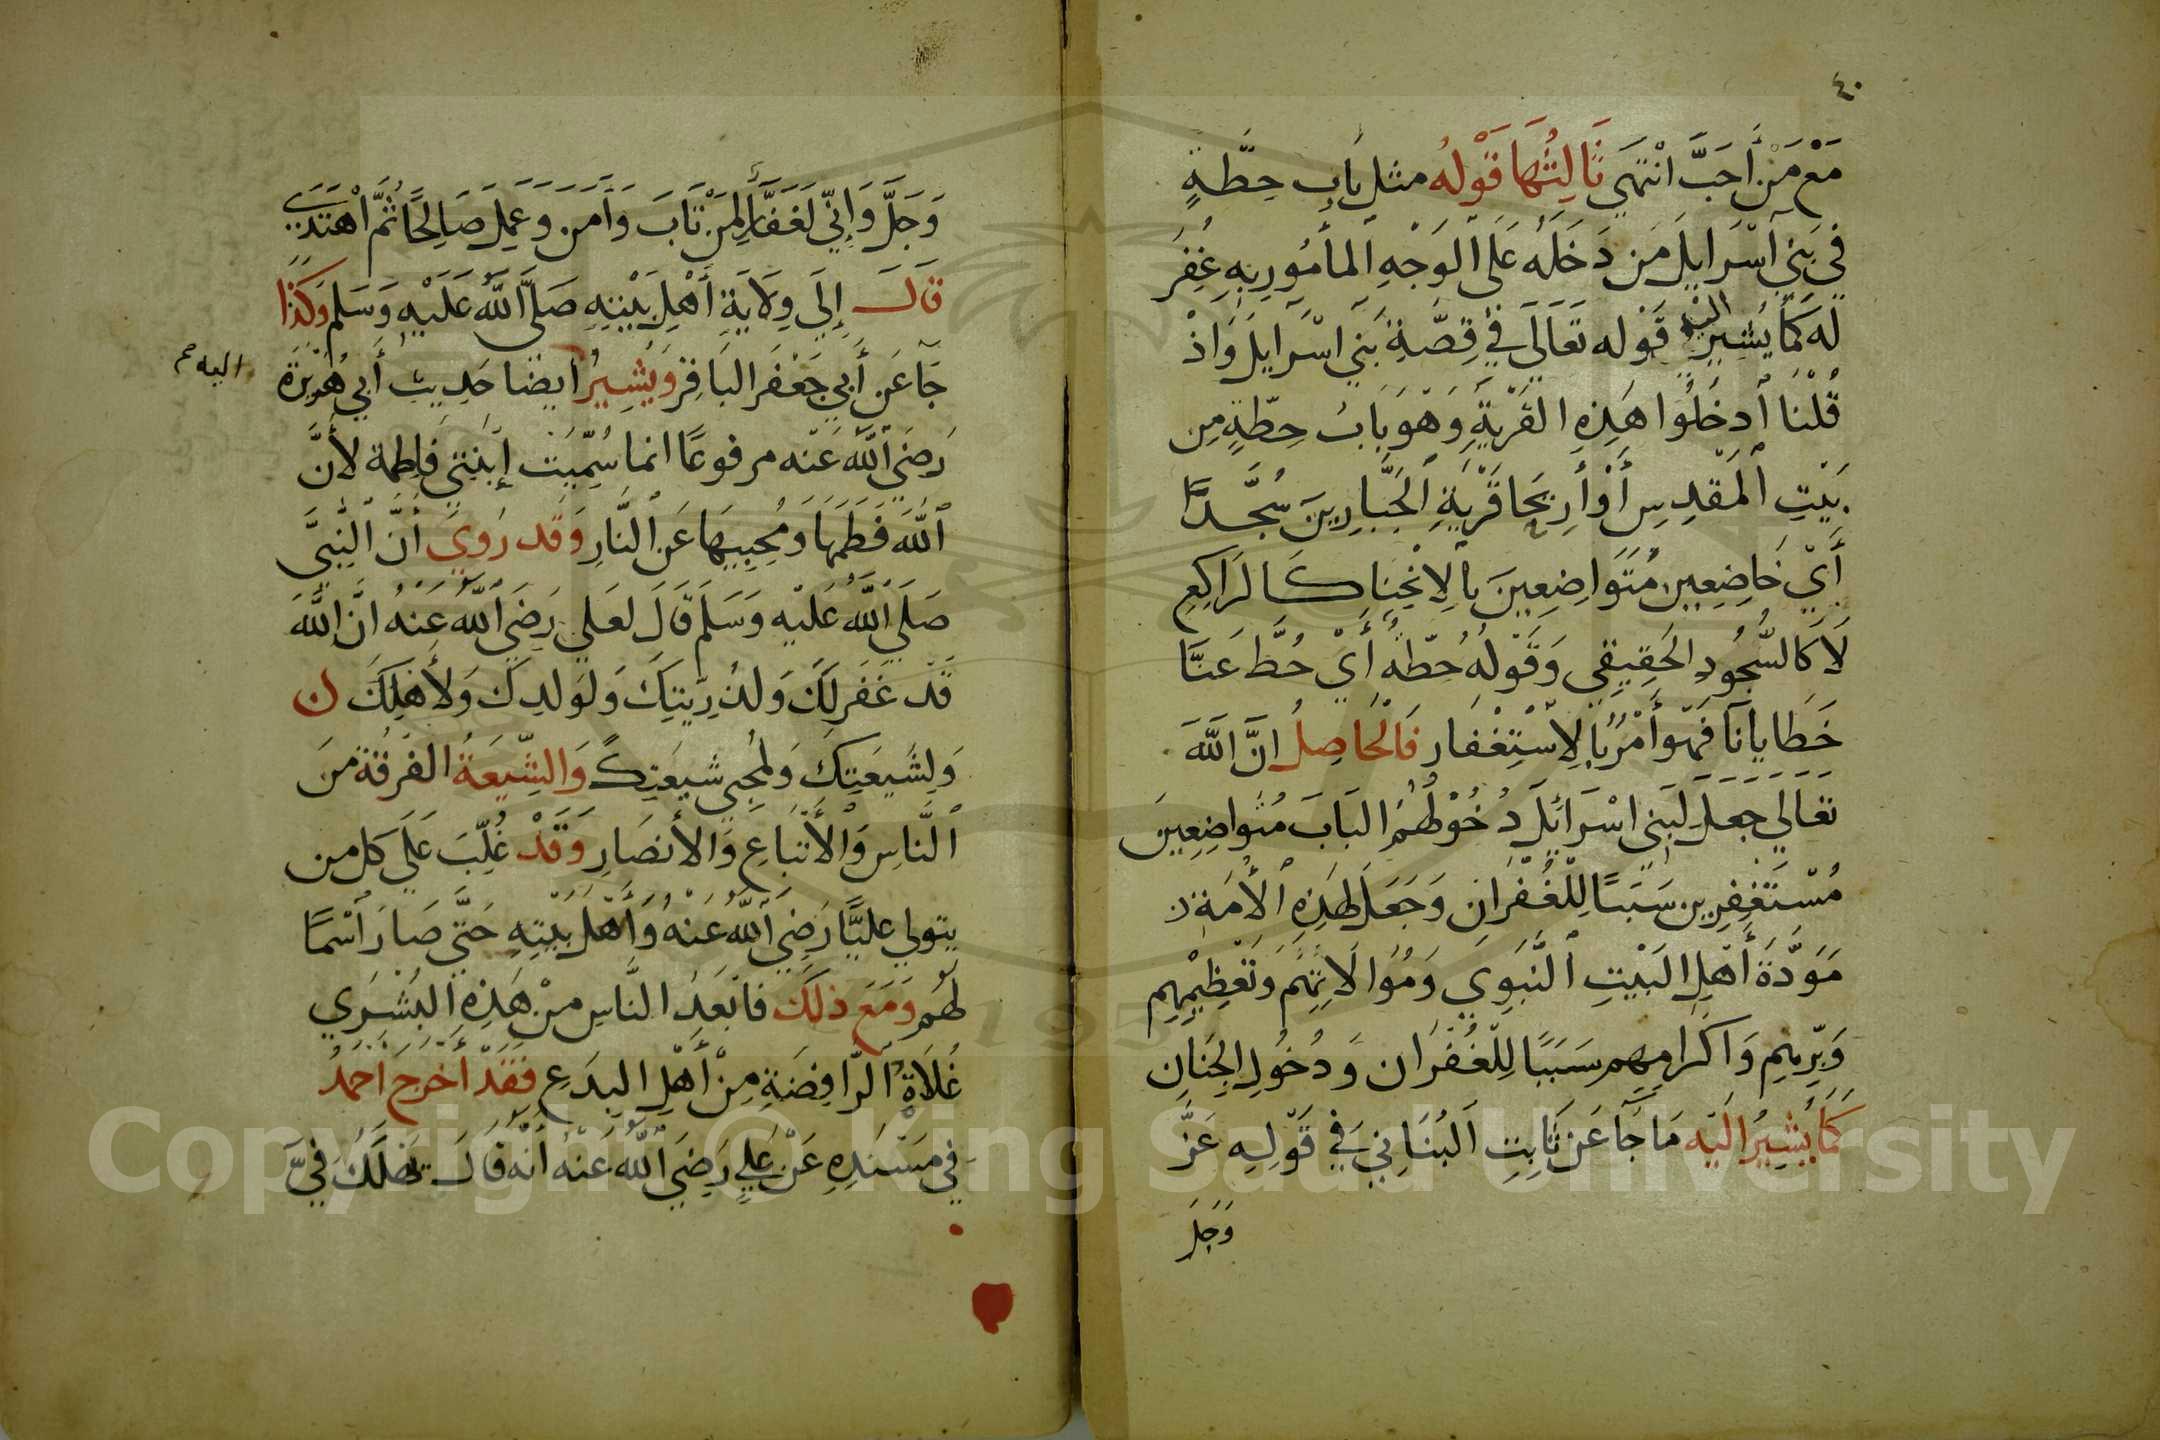 ٤٠
مَعْ مَنْ أَحَبَّ انْتَهَى ثَالِثُهَا قَوْلُهُ مثل بَاب حِطَّةٍ
فِي بَنِي اسْرَايلَ مَن دَخَلَهُ عَلَى الوَجْهِ المأمُورِ بِهِ غُفِرَ
لَهُ كَمَا يُشِيرُ اليْهِ قَوْله تَعَالَى فِي قِصَّةِ بَنِي اسْرَايلَ وَاذْ
قُلْنَا ادخُلُوا هَذِهِ القَرْيَةَ وَهْوَ بَابُ حِطَّةٍ مِن
بَيْتِ المَقدِسِ أَوْ أَرِيحَا قَرْيَةِ الجَبَّارِينَ سُجَّدًا
أَيْ خَاضِعِين مُتَوَاضِعِينَ بالاِنْحِنا كَالرَاكِعِ
لَا كَالسُّجُودِ الحَقِيقِي وَقَوْلُهُ حُطّةٌ أَيْ حُطَّ عَنَّا
خَطَايانَا فَهْوَ أَمْرٌ بالِاسْتِغْفَار فَالْحَاصِلُ انَّ اللَّهَ
تعَالي جَعَلَ لبَنِي اسْرَائِلَ دُخُوْلَهُمُ البَابَ مُتَوَاضِعِينَ
مُسْتَغفِرِين سَبَبًا لِلْغُفْرَانِ وَجَعَلَ لِهَذِهِ الأُمَةِ
مَوَدَّةَ أَهْلِ البَيْتِ النَبَوِي وَمُوَالَاتِهِمْ وَتَعْظِيْمِهِم
وَبِرِّهِم وَاكرَامِهِم سَبَبًا لِلْغُفْرَان وَدُخُولِ الجِنَانِ
كَمَا يُشِيرُ اليْه مَا جَآ عَن ثَابِتِ البُنَانِي فِي قَوْلِهِ عَزَّ
وَجَلَ
وَجَلَّ وَإِنِّي لَغَفَّارٌ لِمَنْ تَابَ وَآمَن وَعَمِلَ صَالِحًا ثُمَّ اهْتَدَى
قَالَ إِلَى وِلَايَةِ أَهْلِ بَيْتِهِ صَلَّى اللَّهُ عَلَيْهِ وَسَلم وَكَذَا
جَآ عَن أَبي جَعْفَر البَاقِرْ وَيُشِيرُ ايضًا حَدِيث أَبي هُرَيْرَةَ
اليه صح
رَضيَ اللَّه عَنْه مرفوعًا انما سُمِّيَت إبْنَتِي فَاطِمة لأَنَّ
اللَّه فَطَمَهَا وَمُحِبِيهَا عَن النَّارِ وَقَد رُوِيَ أَنَّ النَّبِيَّ
صَلَي اللَّه عَلَيْه وَسَلَم قَالَ لعَلي رَضَيَ اللَّه عَنْهُ انَّ اللَّهَ
قَدْ غَفَر لكَ وَلذُرِيَتِكَ وَلوَلدِكَ وَلأَهْلِكَ
وَلِشَيعَتِكَ وَلمُحِبي شيعَتِكَ وَالشِّيعَةُ الفرْقَة منَ
النَّاسِ وَالأَتْبَاعِ وَالأَنصَارِ وَقَدْ غُلِّبَ عَلَي كل من
يتولي عليًّا رَضِيَ اللَّهُ عَنْهُ وَأَهْلَ بَيْتِهِ حَتَّى صَارَ اسْمًا
لَهُم وَمَعَ ذلكَ فأبْعَدُ النَّاسِ مِنْ هَذِهِ البُشْرَي
غُلَاةُ الرَّافِضَةِ مِنْ أَهْلِ البِدَعِ فَقَدْ أَخرَجَ احَمدُ
فِي مَسْنَدِهِ عَنْ عَلي رَضيَ اللَّهُ عَنْهُ أَنَّهُ قَالَ يَهْلَكُ فِيَّ